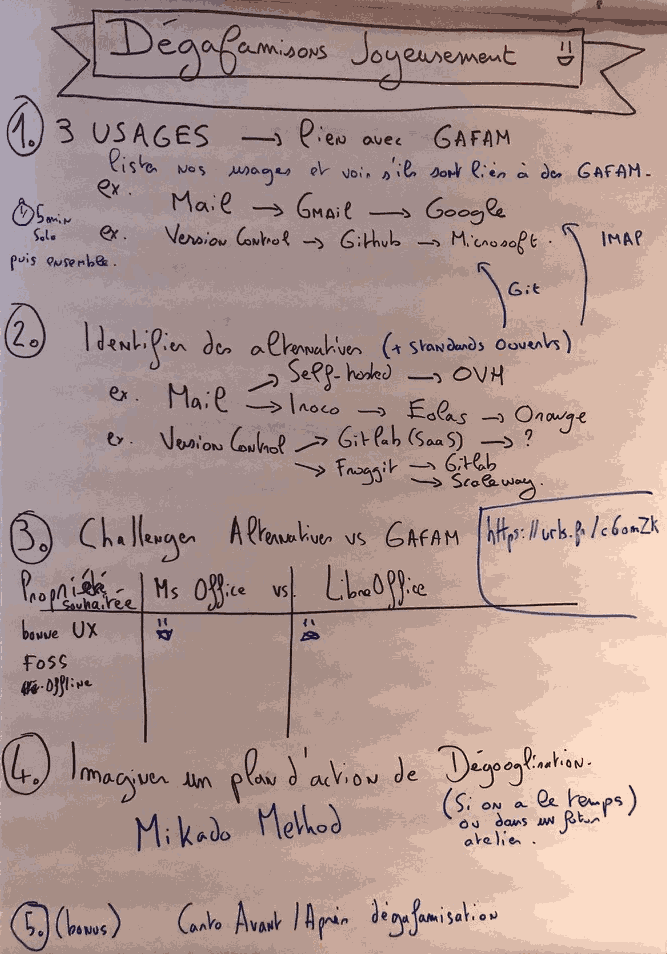 Dégafamisons Joyeusement
1. 3 USAGES → lien avec GAFAM
lister nos usages et voir s'ils sont liés à des GAFAM.
ex. Mail → GMAIL → Google
5min
Solo
puis ensemble.
ex. Version Control → Github → Microsoft.
IMAP
Git
2. Identifier des alternatives (+ standards ouverts)
ex. Mail → Self-hosted → OVH
→ Inoco → Eolas → Orange
ex. Version Control → Gitlab (SaaS) → ?
→ Froggit → Gitlab
→ Scaleway.
3. Challenger Alternatives vs GAFAM
https://urls.fr/c6omZk
Propriété souhaitée
Ms Office vs LibreOffice
bonne UX
FOSS
Offline
4. Imaginer un plan d'action de Dégooglination.
Mikado Method
(Si on a le temps)
ou dans un futur
atelier.
5. (bonus) Carto Avant / Après dégafamisation